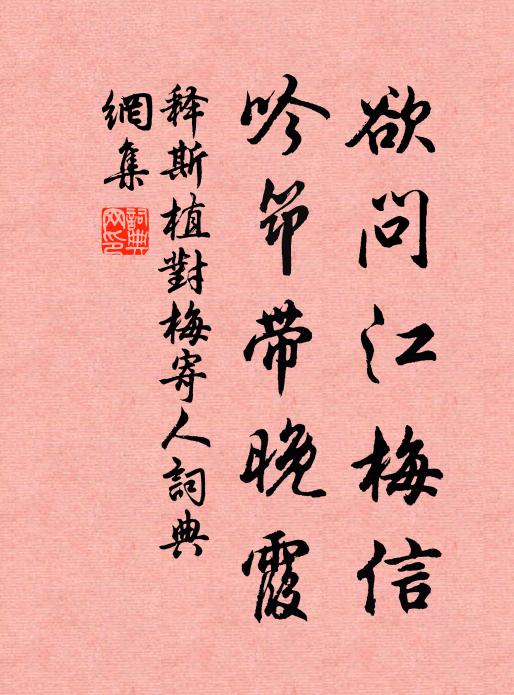 欲问江梅信
吟笻带晚霞
释斯植對梅寄人詞典
網集
詞典
网印